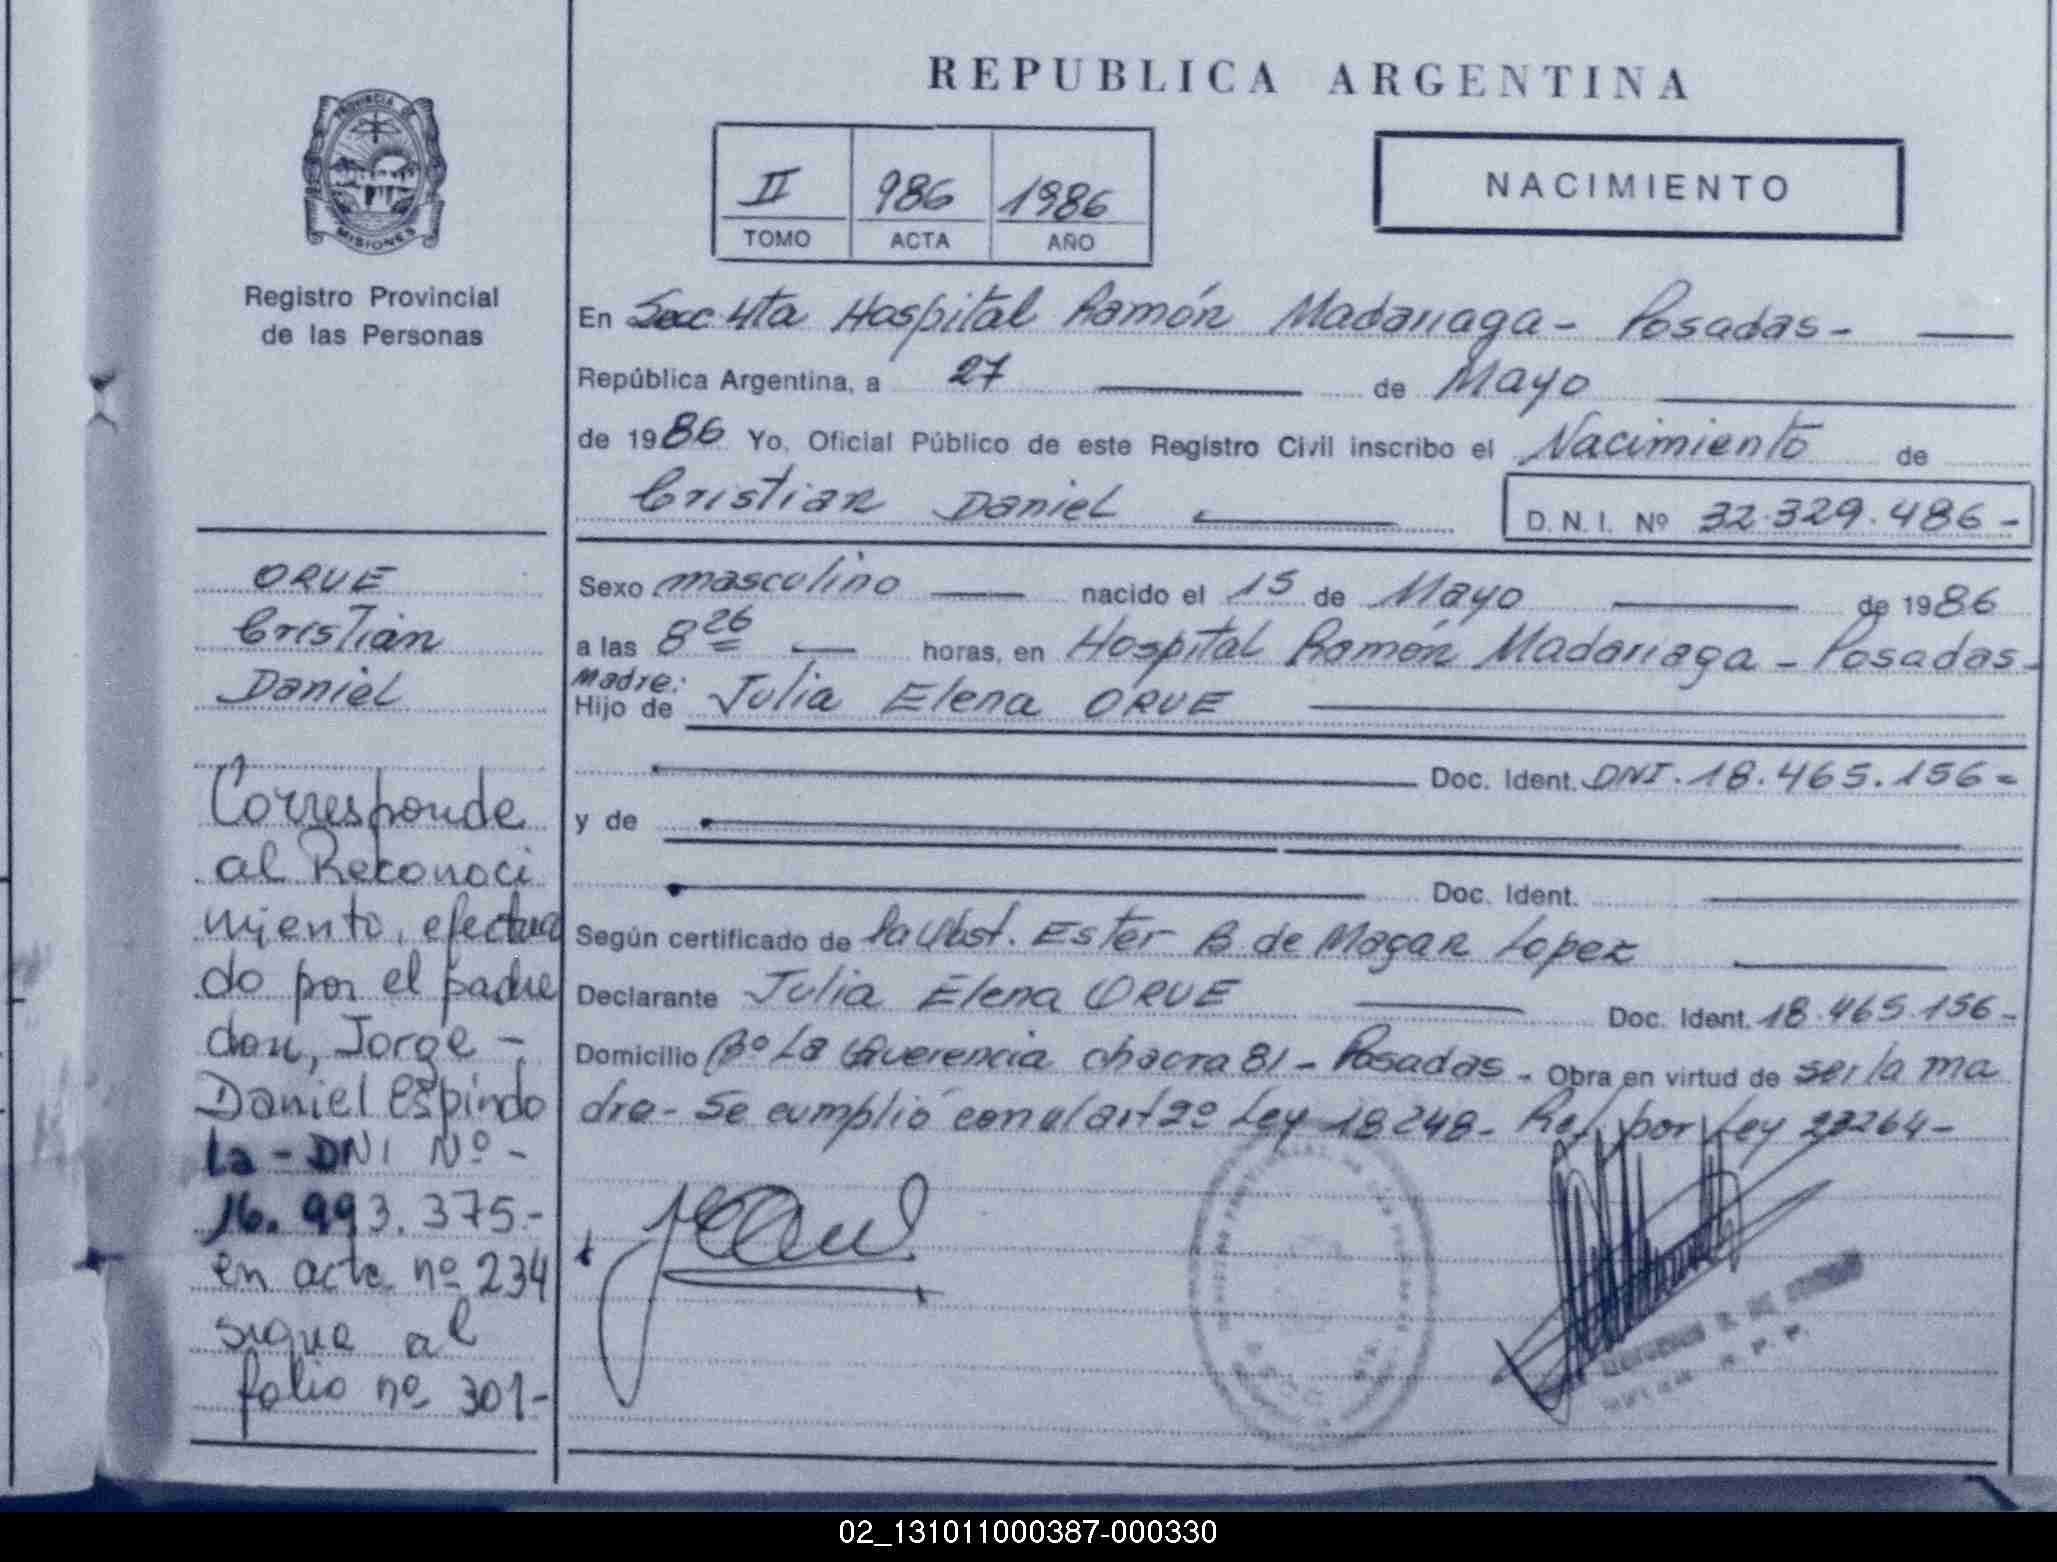 PROVINCIA DE
MISIONES
Registro Provincial
de las Personas
ORUE
Cristian
Daniel
Corresponde
al Reconoci
miento, efectua
do por el padre
don, Jorge -
Daniel Espindo
la - DNI Nº -
16.993.375.-
en acta nº 234
sigue al
folio nº 301-
REPUBLICA ARGENTINA
II 986 1986
TOMO ACTA AÑO
NACIMIENTO
En Secc 4ta Hospital Ramón Madariaga - Posadas -
República Argentina, a 27 de Mayo
de 1986 Yo, Oficial Público de este Registro Civil inscribo el Nacimiento de
Cristian Daniel D. N. I. Nº 32.329.486 -
Sexo masculino nacido el 15 de Mayo de 1986
a las 8 26 horas, en Hospital Ramón Madariaga - Posadas -
Madre:
Hijo de Julia Elena ORUE
Doc. Ident. DNI. 18.465.156 =
y de
Doc. Ident.
Según certificado de la Obst. Ester B. de Magan Lopez
Declarante Julia Elena ORUE Doc. Ident. 18.465.156 -
Domicilio Bº La chacra 81 - Posadas - Obra en virtud de ser la ma
dre - Se cumplió con el art 2º Ley 18248 - Ref. por Ley 23264 -
02_131011000387-000330